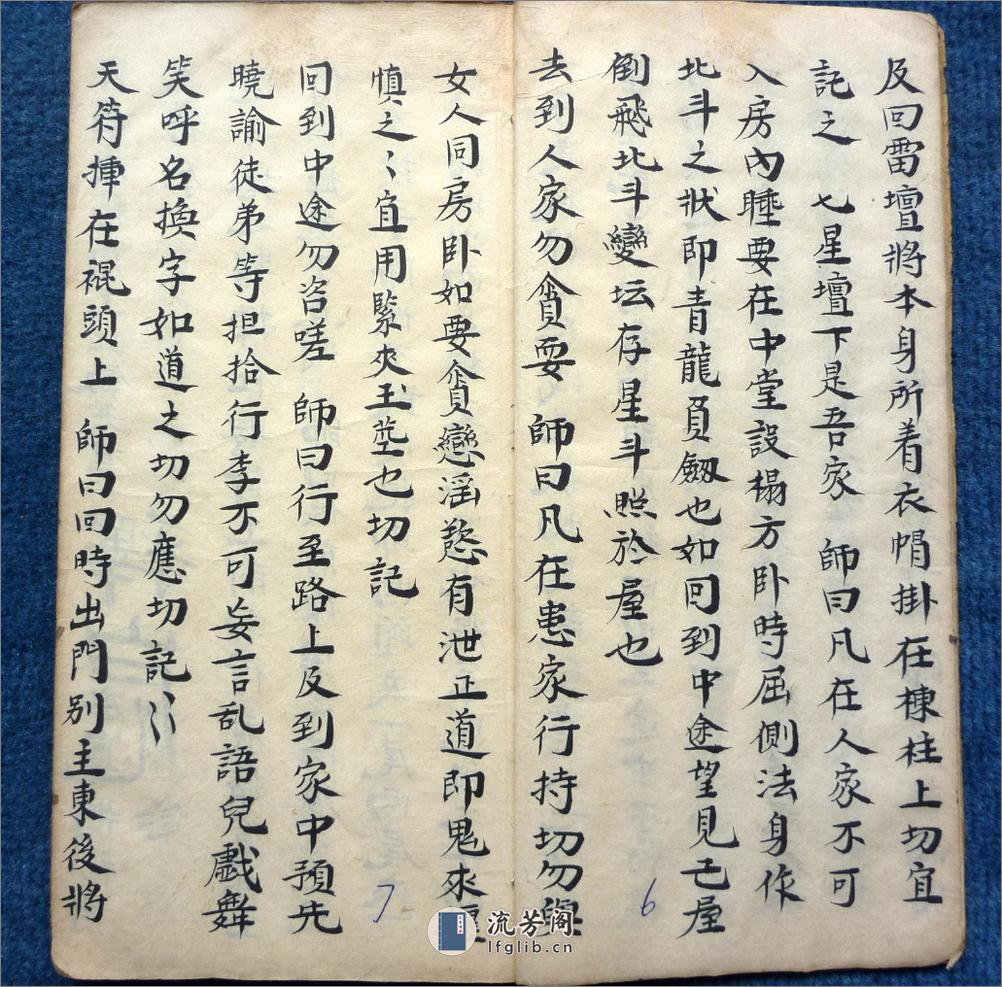 反回雷壇將本身所着衣帽掛在棟柱上切宜
記之 七星壇下是吾家 師曰凡在人家不可
入房內睡要在中堂設榻方卧時屈側法身作
北斗之狀即青龍負劔也如回到中途望見己屋
倒飛北斗變坛存星斗照於屋也
去到人家勿貪耍 師曰凡在患家行持切勿與
6
女人同房卧如要貪戀滛慾有泄正道即鬼來
慎之〻宜用緊夾玉茎也切記
回到中途勿咨嗟 師曰行至路上及到家中預先
曉諭徒弟等担拾行李不可妄言乱語兒戲舞
笑呼名換字如道之切勿應切記〻
天符揷在裩頭上 師曰回時出門别主東後將
7
流芳阁
lfglib.cn